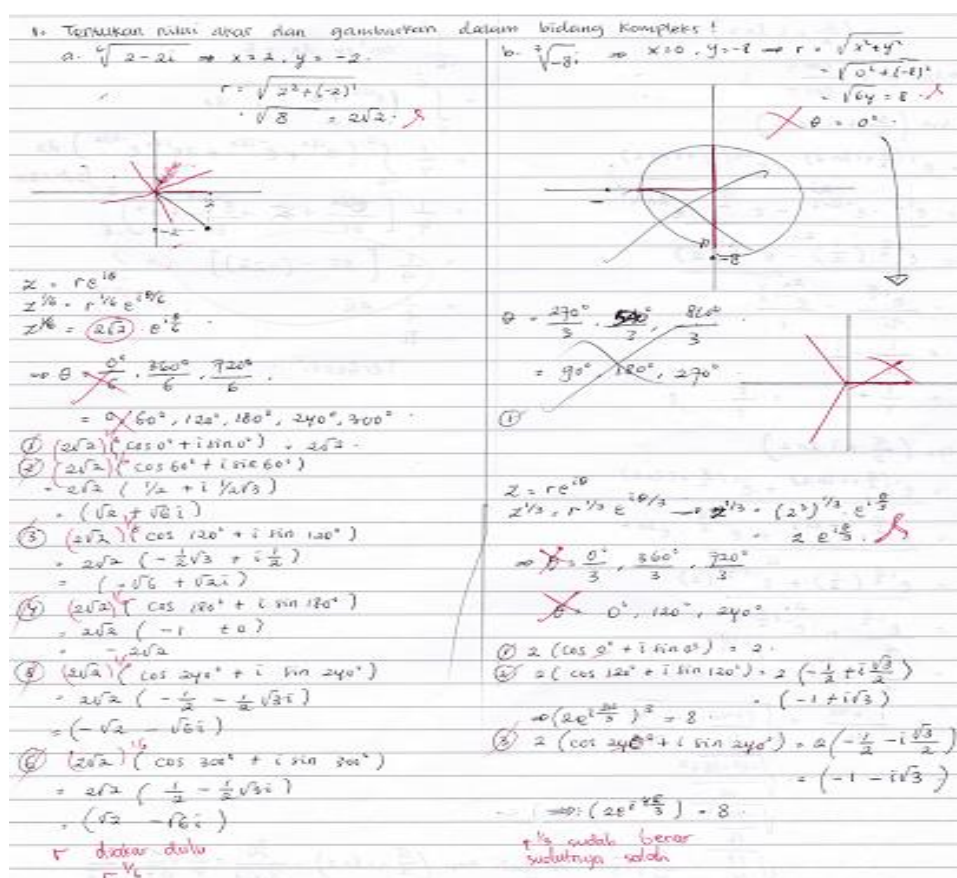 1. Tentukan nilai akar dan gambarkan dalam bidang kompleks!
a. ⁶√2-2i ⇒ x=2, y=-2.
r = √2²+(-2)²
= √8 = 2√2.
-2
z = re^iθ
z^1/6 = r^1/6 e^iθ/6
z^1/6 = (2√2) . e^iθ/6
⇒ θ = 0°/6, 360°/6, 720°/6.
= 0, 60°, 120°, 180°, 240°, 300°.
① (2√2)^1/6 (cos 0° + i sin 0°) = 2√2.
② (2√2)^1/6 (cos 60° + i sin 60°)
= 2√2 (1/2 + i 1/2√3)
= (√2 + √6i)
③ (2√2)^1/6 (cos 120° + i sin 120°)
= 2√2 (-1/2√3 + i 1/2)
= (-√6 + √2i)
④ (2√2)^1/6 (cos 180° + i sin 180°)
= 2√2 (-1 + 0)
= -2√2
⑤ (2√2)^1/6 (cos 240° + i sin 240°)
= 2√2 (-1/2 - 1/2√3i)
= (-√2 - √6i)
⑥ (2√2)^1/6 (cos 300° + i sin 300°)
= 2√2 (1/2 - 1/2√3i)
= (√2 - √6i)
r diakar dulu
r^1/6
b. ³√-8i ⇒ x=0, y=-8 ⇒ r = √x²+y²
= √0²+(-8)²
= √64 = 8.
θ = 0°.
-8
θ = 270°/3, 540°/3, 810°/3
= 90°, 180°, 270°
①
z = re^iθ
z^1/3 = r^1/3 e^iθ/3 → z^1/3 = (2³)^1/3 . e^iθ/3
= 2 e^iθ/3.
⇒ θ = 0°/3, 360°/3, 720°/3
θ = 0°, 120°, 240°
① 2 (cos 0° + i sin 0°) = 2.
② 2 (cos 120° + i sin 120°) = 2 (-1/2 + i √3/2)
= (-1 + i√3)
③ 2 (cos 240° + i sin 240°) = 2 (-1/2 - i √3/2)
= (-1 - i√3)
r^1/3 sudah benar
sudutnya salah